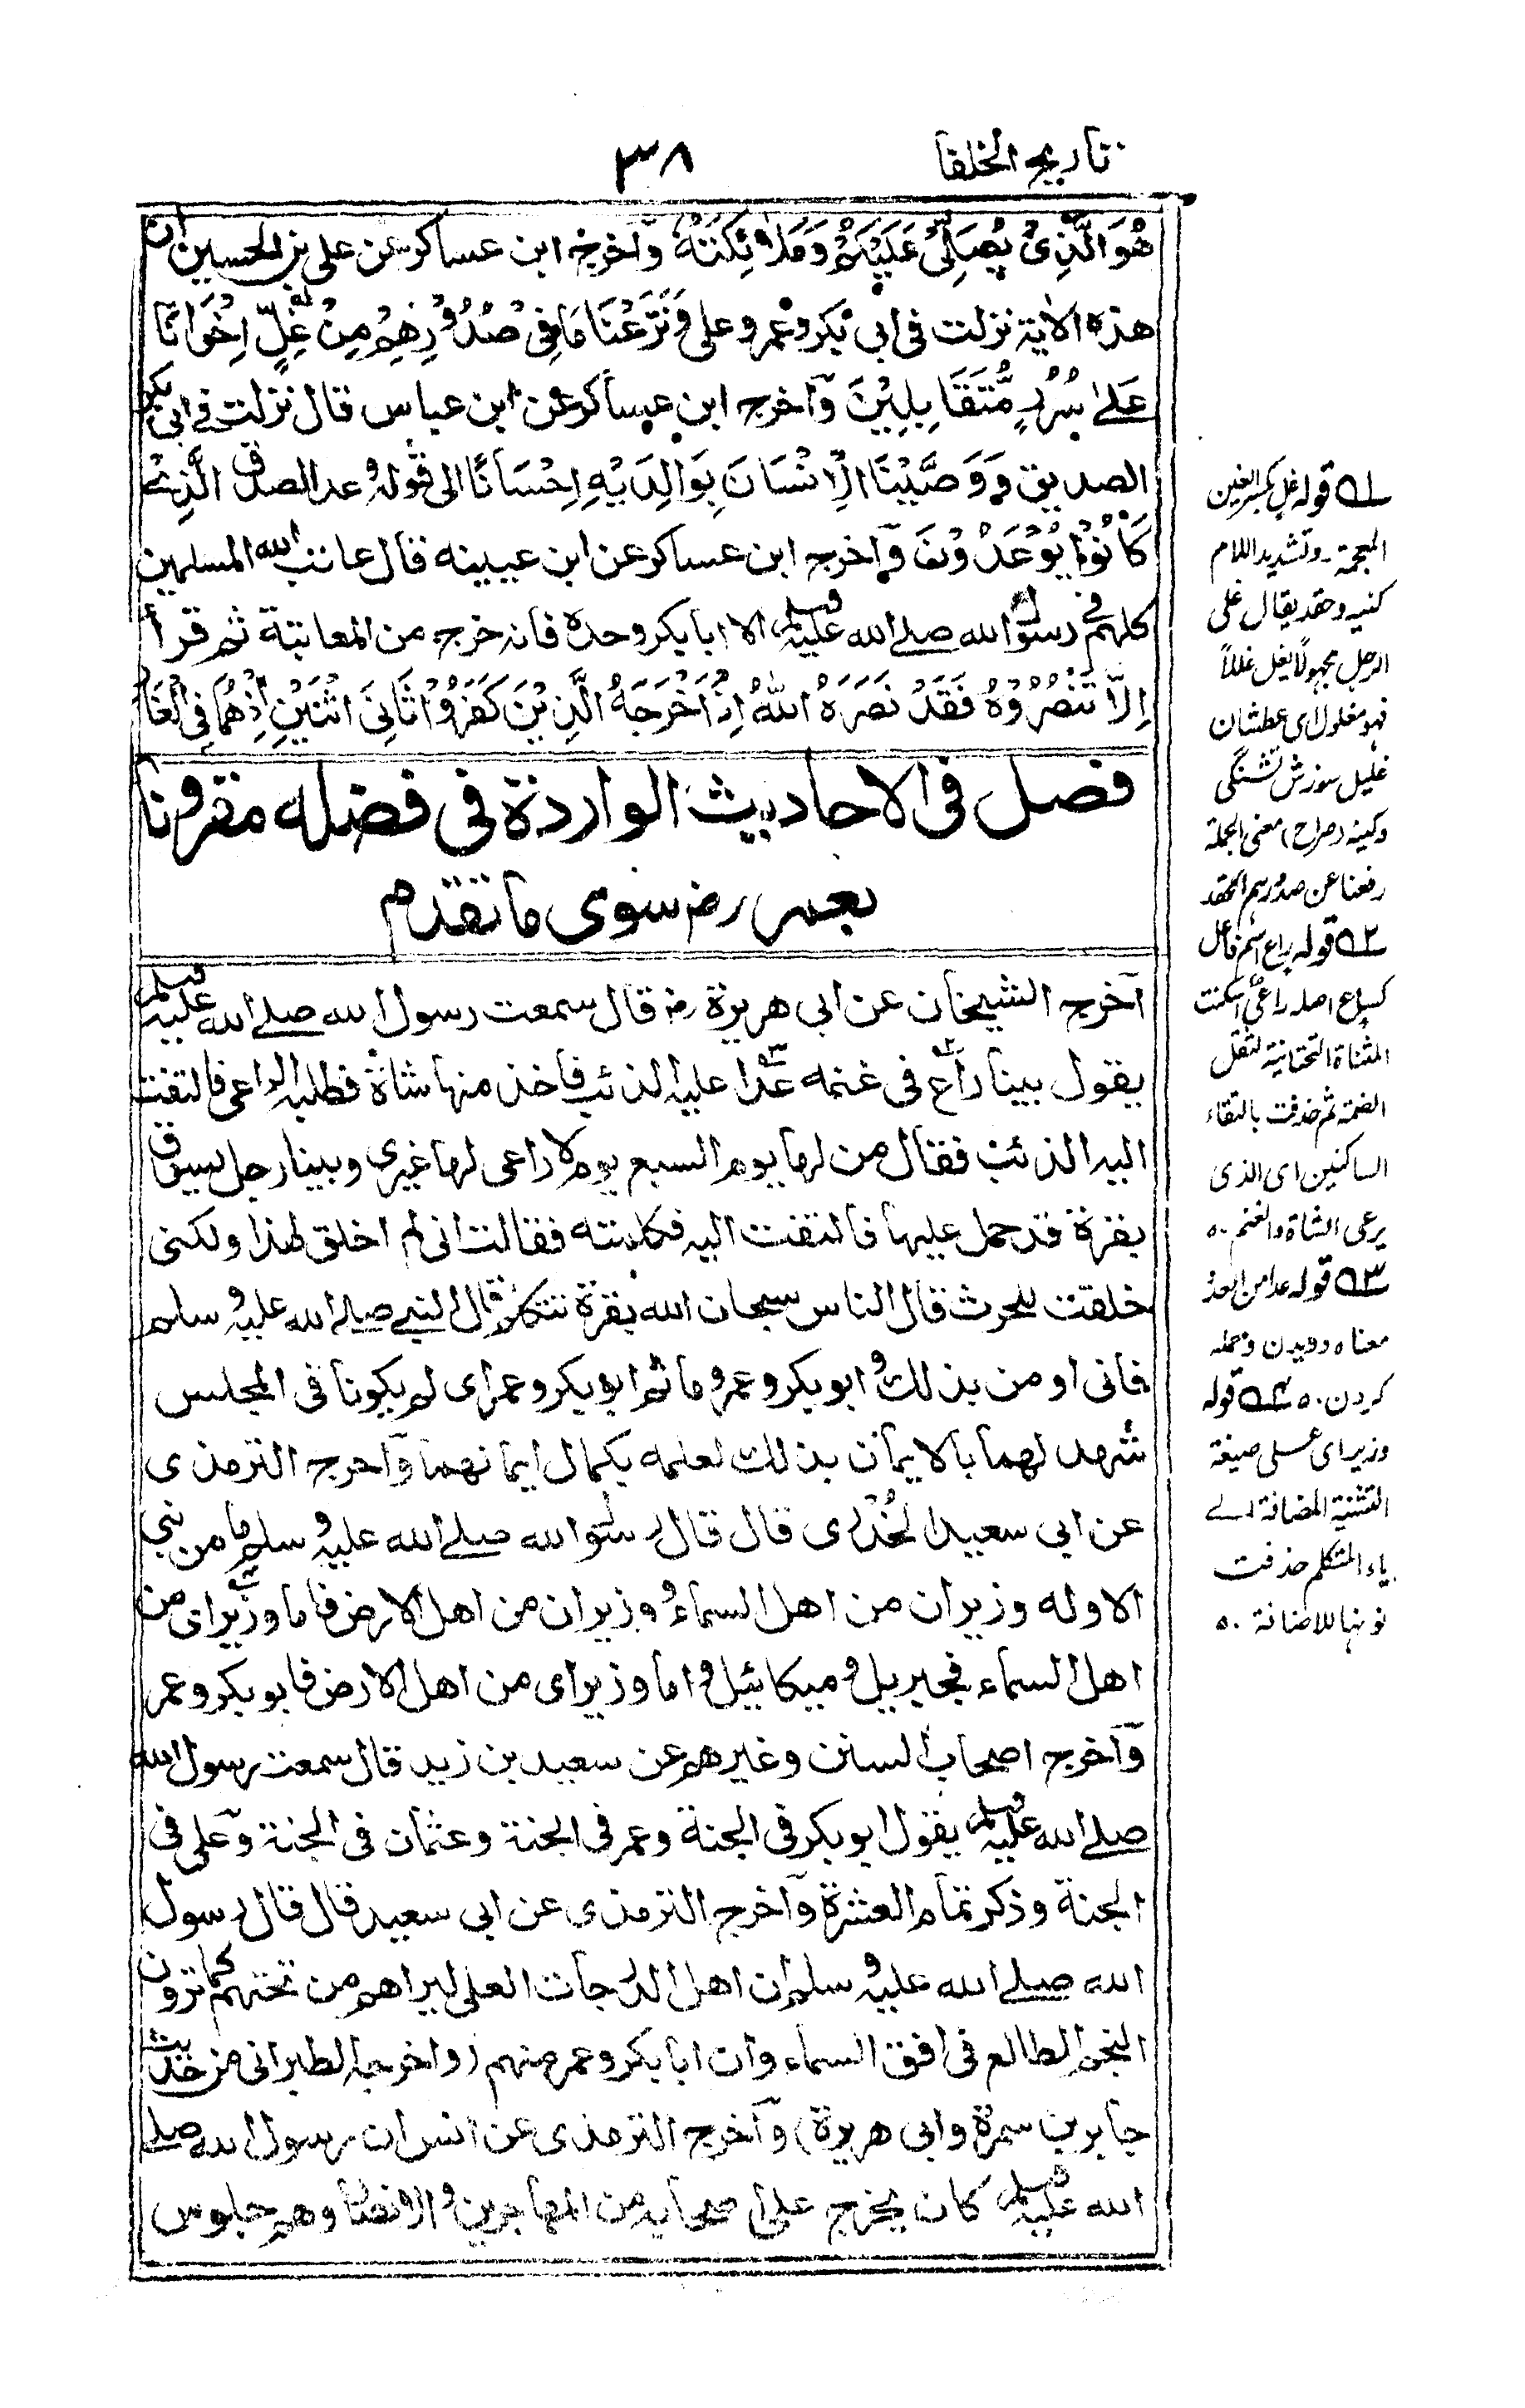 تاريخ الخلفا
٣٨
هُوَ الَّذِىْ يُصَلِّىْ عَلَيْكُمْ وَمَلٰٓئِكَتُهٗ وآخرج ابن عساكر عن على بن الحسين ان
هذه الاٰية نزلت فى ابى بكر وعمر وعلى وَنَزَعْنَا مَا فِىْ صُدُوْرِهِمْ مِنْ غِلٍّ اِخْوَانًا
عَلٰى سُرُرٍ مُّتَقَابِلِيْنَ وآخرج ابن عساكر عن ابن عباس قال نزلت فى ابى بكر
الصديق وَوَصَّيْنَا الْاِنْسَانَ بِوَالِدَيْهِ اِحْسَانًا الى قوله وعد الصدق الَّذِىْ
كَانُوْا يُوْعَدُوْنَ وآخرج ابن عساكر عن ابن عيينه قال عاتب الله المسلمين
كلهم فى رسول الله صلے الله عليه وسلم الا ابا بكر وحده فانه خرج من المعاتبة ثم قرأ
اِلَّا تَنْصُرُوْهُ فَقَدْ نَصَرَهُ اللهُ اِذْ اَخْرَجَهُ الَّذِيْنَ كَفَرُوْا ثَانِىَ اثْنَيْنِ اِذْهُمَا فِى الْغَارِ
فصل فى الاحاديث الواردة فى فضله مقرونا
بعمر رض سوى ما تقدم
آخرج الشيخان عن ابى هريرة رض قال سمعت رسول الله صلے الله عليه وسلم
يقول بينا راع فى غنمه عدا عليه الذئب فاخذ منها شاة فطلبه الراعى فالتفت
اليه الذئب فقال من لها يوم السبع يوم لا راعى لها غيرى وبينا رجل يسوق
بقرة قد حمل عليها فالتفت اليه فكلمته فقالت انى لم اخلق لهذا ولكنى
خلقت للحرث قال الناس سبحان الله بقرة تتكلم قال النبى صلے الله عليه و سلم
فانى اومن بذلك و ابو بكر وعمر وما ثم ابو بكر وعمر اى لم يكونا فى المجلس
شهد لهما بالايمان بذلك لعلمه بكمال ايمانهما وآخرج الترمذى
عن ابى سعيد الخُدرى قال قال رسول الله صلے الله عليه و سلم ما من نبى
الا وله وزيران من اهل السماء و وزيران من اهل الارض فاما وزيراى من
اهل السماء فجبريل و ميكائيل و اما وزيراى من اهل الارض فابو بكر وعمر
وآخرج اصحاب السنن وغيرهم عن سعيد بن زيد قال سمعت رسول الله
صلے الله عليه وسلم يقول ابو بكر فى الجنة وعمر فى الجنة وعثمان فى الجنة وعلى فى
الجنة وذكر تمام العشرة وآخرج الترمذى عن ابى سعيد قال قال رسول
الله صلے الله عليه و سلم ان اهل الدرجات العلى ليراهم من تحتهم كما ترون
النجم الطالع فى افق السماء وان ابا بكر وعمر منهم (واخرجه الطبرانى من حديث
جابر بن سمرة وابى هريرة) وآخرج الترمذى عن انس ان رسول الله صلے
الله عليه وسلم كان يخرج على اصحابه من المهاجرين و الانصار وهم جلوس
١ـه قوله غل بكسر الغين
المعجمة ـ وتشديد اللام
كنيه وحقد يقال غل
الرجل مجهولًا يغل غللاً
فهو مغلول اى عطشان
غليل سوزش تشنگى
وكينه (صراح) معنى الجملة
رفعنا عن صدورهم الحقد
٢ـه قوله راع اسم فاعل
كساع اصله راعىٌ اسكنت
المثناة التحتانية لثقل
الضمة ثم حذفت بالتقاء
الساكنين اى الذى
يرعى الشاة والغنم ٥٠
٣ـه قوله عدا من العدو
معناه دويدن وحمله
كردن ٥٠ ٤ـه قوله
وزيراى على صيغة
التثنية المضافة الے
ياء المتكلم حذفت
نونها للاضافة ٥٠